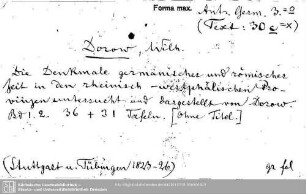 Forma max. Antr. Germ. 3. =a
(Text: 30 =x)
Dorow, Wilh.
Die Denkmale germanischer und römischer
Zeit in den rheinisch-westphälischen Pro-
vinzen untersucht und dargestellt von Dorow.
Bd 1. 2. 36 + 31 Tafeln. [Ohne Titel.]
(Stuttgart u. Tübingen 1823-26) gr. fol.